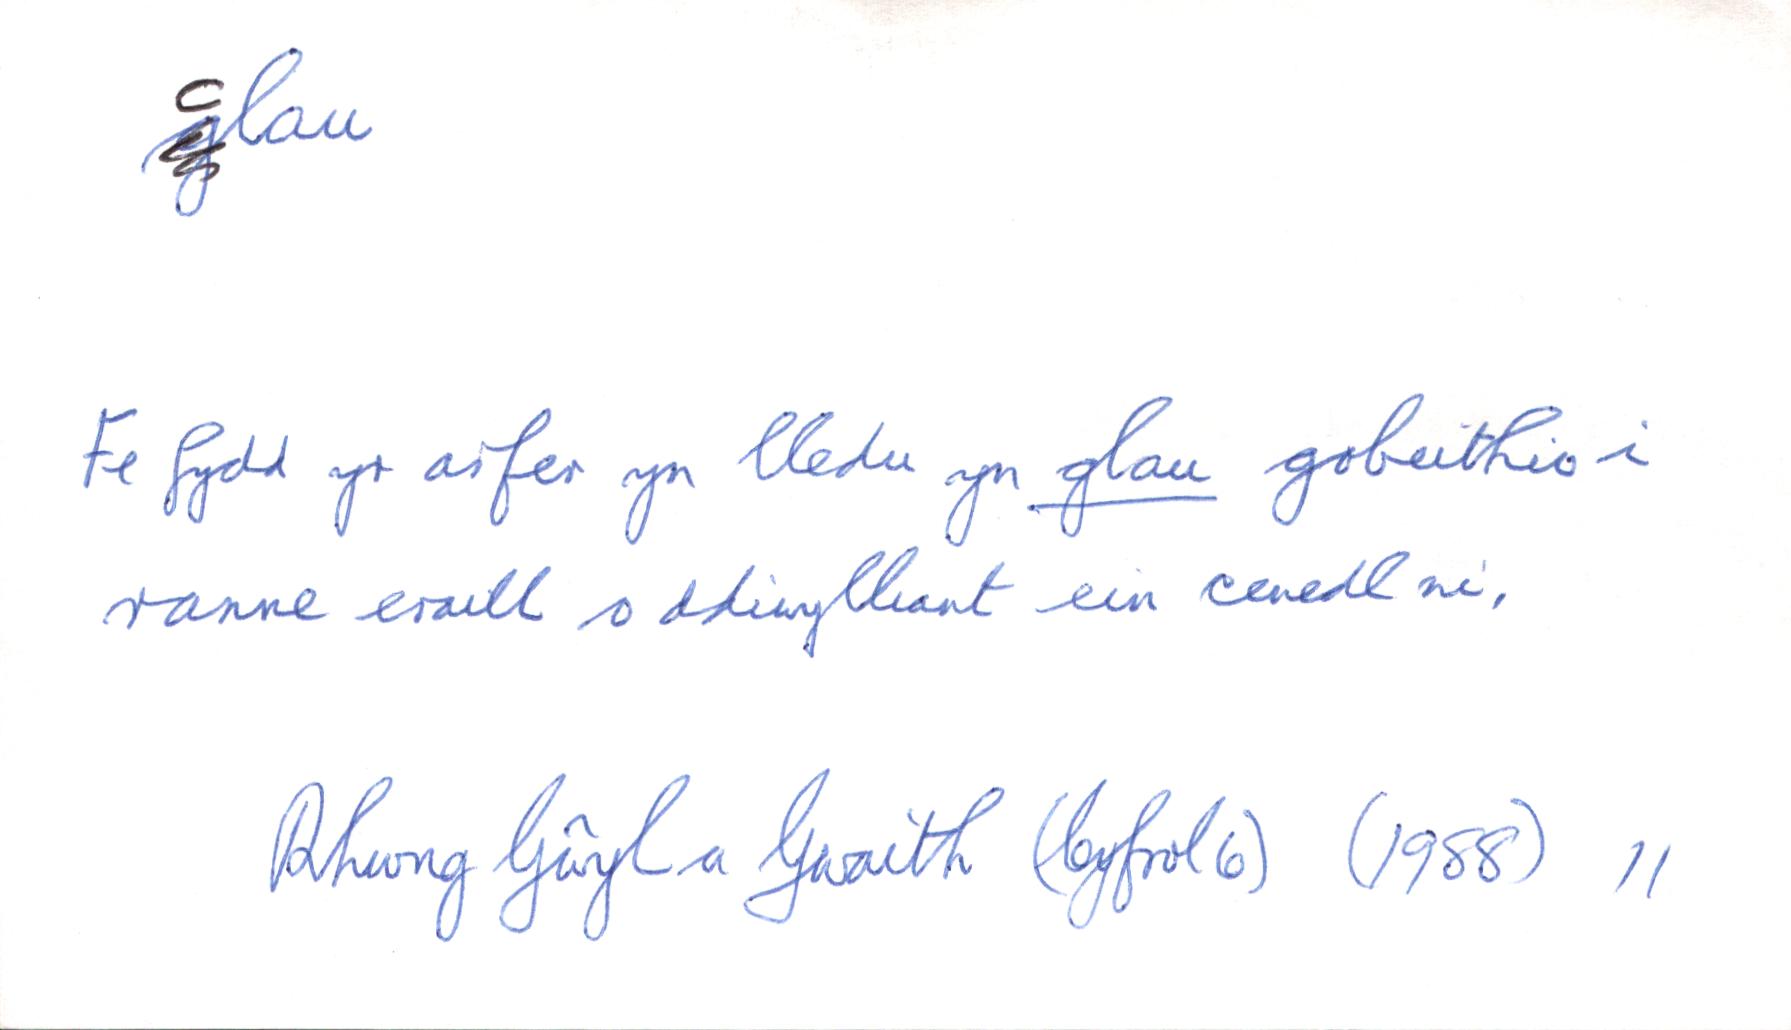 clau
Fe fydd yr arfer yn lledu yn glau gobeithio i
ranne eraill o ddiwylliant ein cenedl ni.
Rhwng Gŵyl a Gwaith (Cyfrol 6) (1988) 11